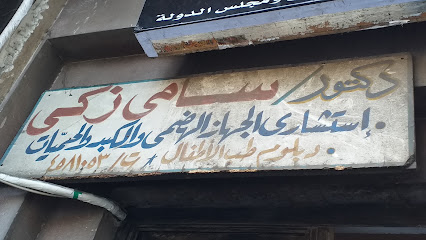 ومجلس الدولة
دكتور/ سامى زكى
• إستشارى الجهاز الهضمى والكبد والحميات
• دبلوم طب الأطفال